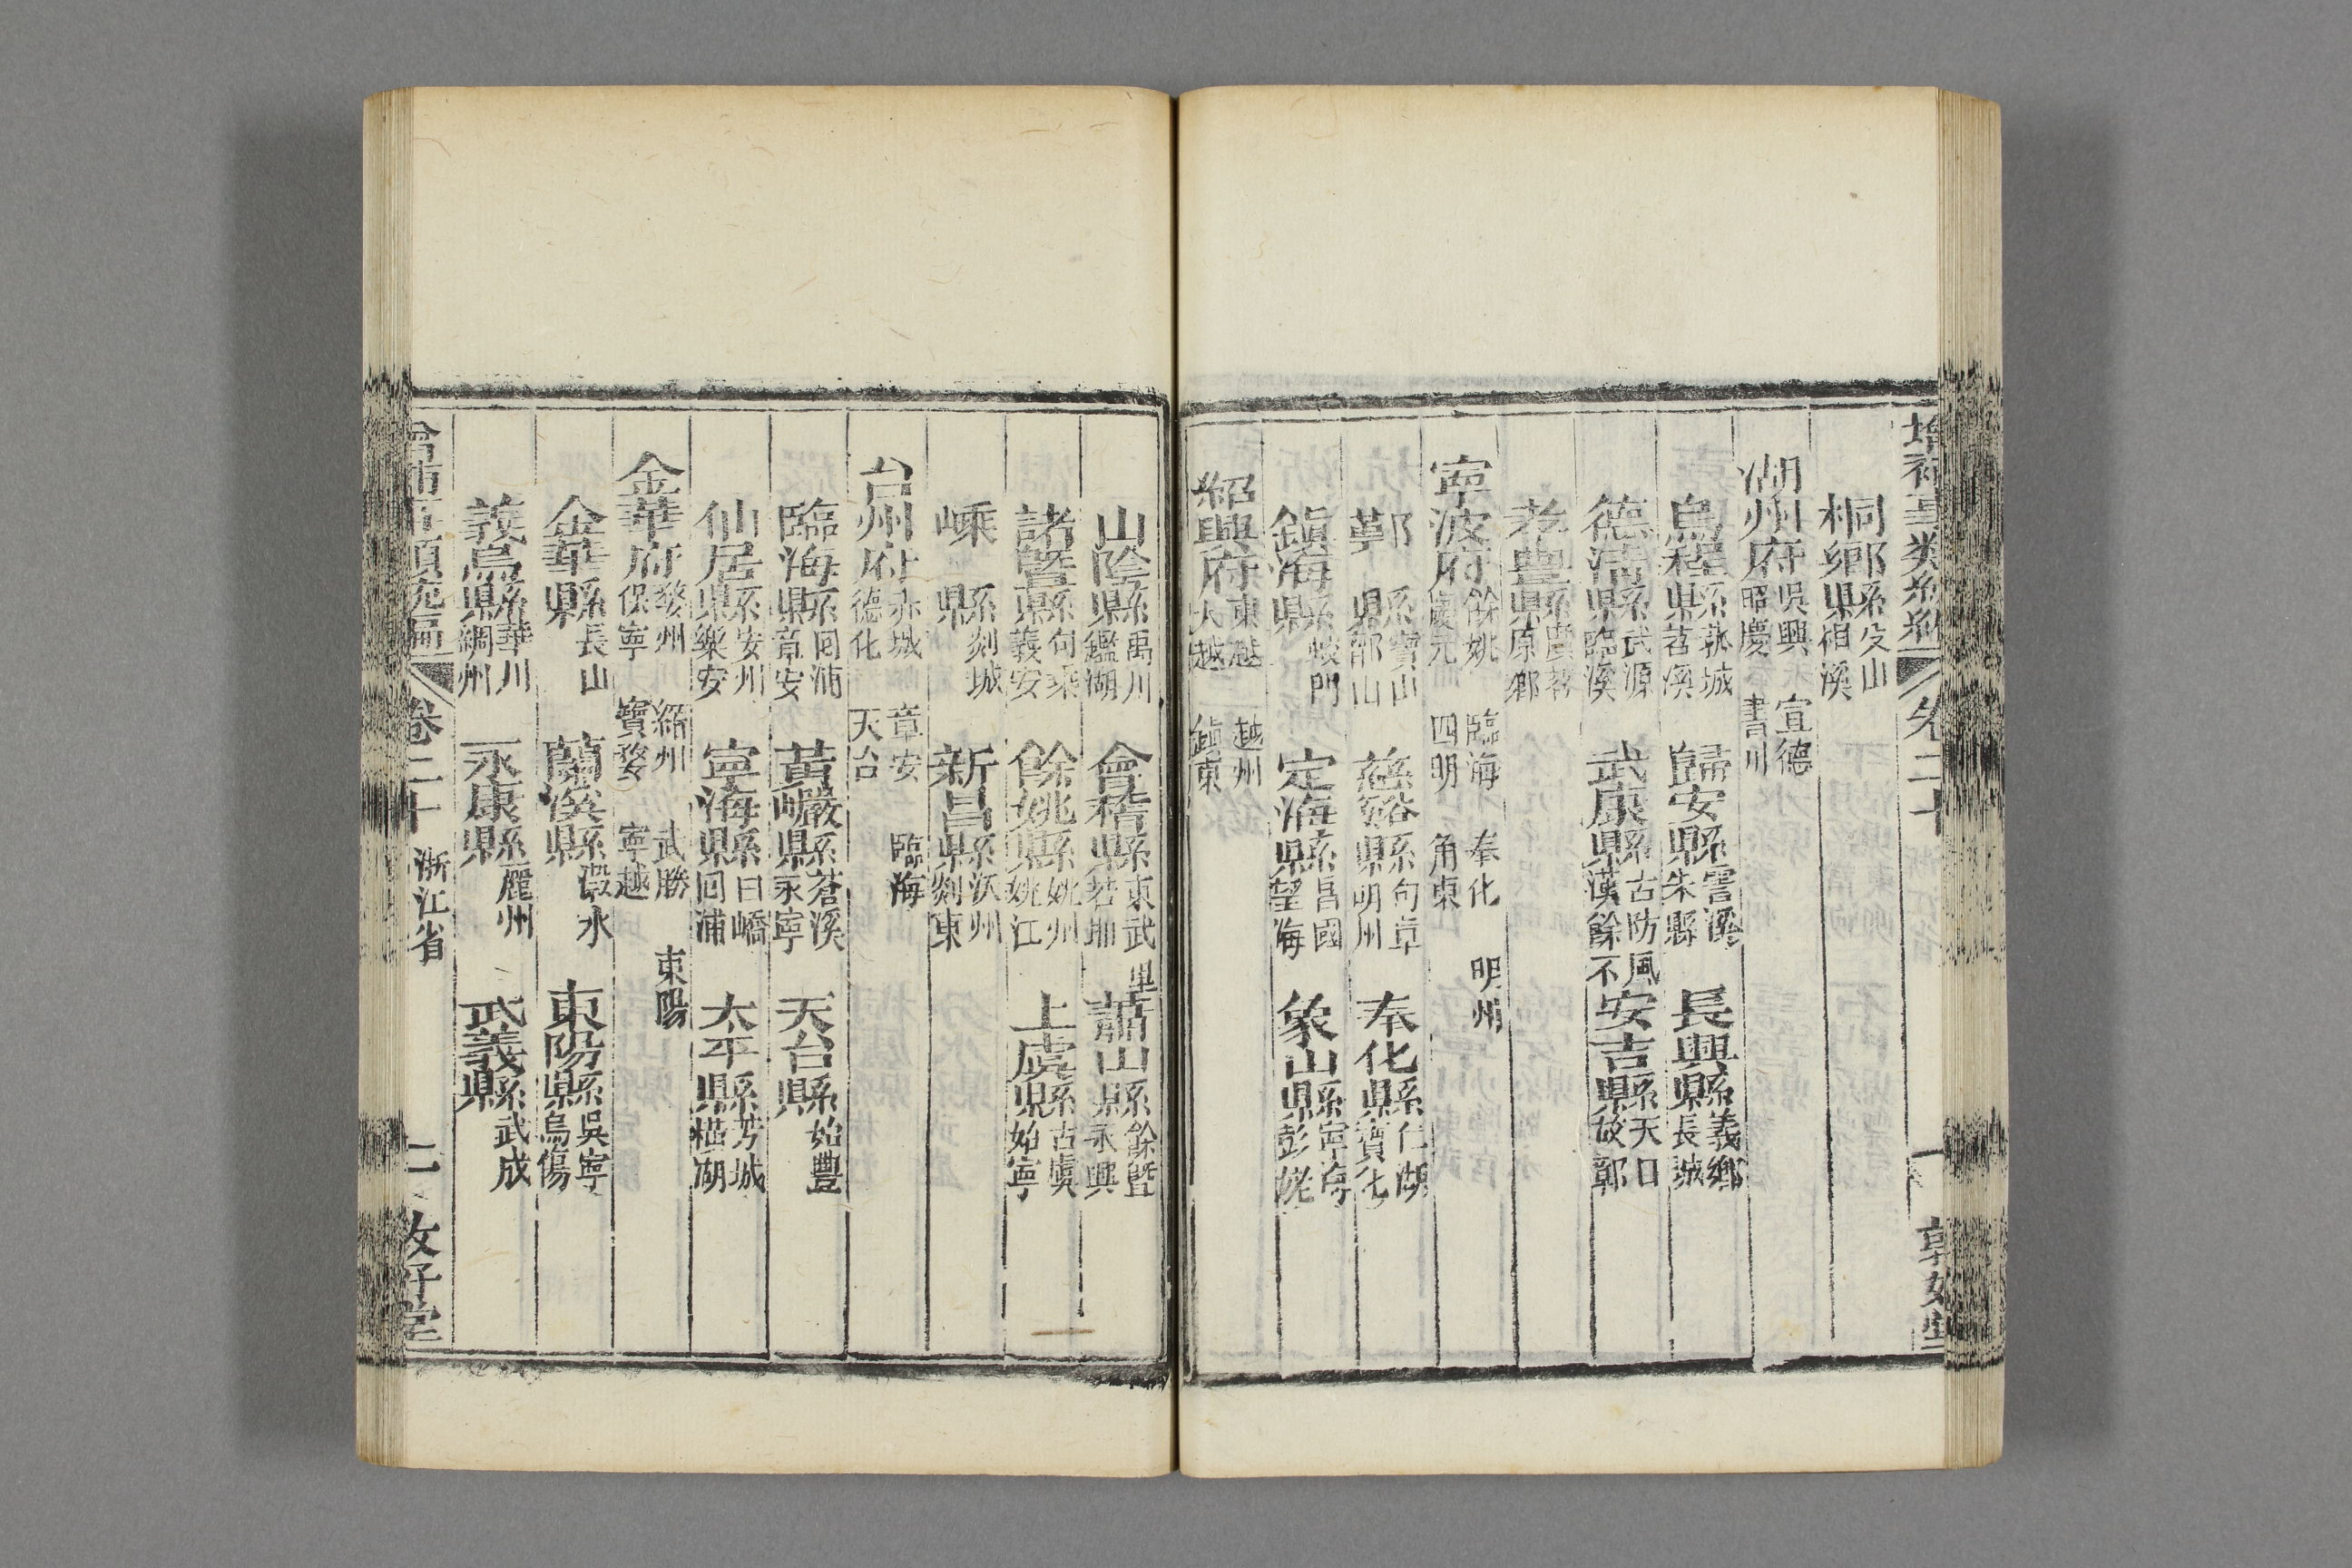 增補事類統編 卷二十 敦好堂
桐鄉縣 殳山 梧溪
湖州府 吳興 昭慶 宣德 書川
烏程縣 菰城 苕溪 歸安縣 霅溪 朱縣 長興縣 義鄉 長城
德清縣 武源 臨溪 武康縣 古防風 漢餘不 安吉縣 天目 故鄣
孝豐縣 廣苕 原鄉
寧波府 餘姚 慶元 臨海 四明 奉化 角東 明州
鄞縣 寶山 鄮山 慈谿縣 句章 明州 奉化縣 仁湖 寶化
鎮海縣 蛟門 定海縣 昌國 望海 象山縣 寧海 彭姥
紹興府 東越 大越 越州 鎮東
山陰縣 禹川 鑑湖 會稽縣 東武里 若耶 蕭山縣 餘暨 永興
諸暨縣 句乘 義安 餘姚縣 姚州 姚江 上虞縣 古虞 始寧
嵊縣 剡城 新昌縣 沃州 剡東
台州府 赤城 德化 章安 天台 臨海
臨海縣 回浦 章安 黃巖縣 蒼溪 永寧 天台縣 始豐
仙居縣 安州 樂安 寧海縣 日嶠 回浦 太平縣 芳城 橫湖
金華府 婺州 保寧 縉州 寶婺 武勝 寧越 東陽
金華縣 長山 蘭溪縣 瀫水 東陽縣 吳寧 烏傷
義烏縣 華川 綢州 永康縣 麗州 武義縣 武成
卷二十 浙江省 二 敦好堂